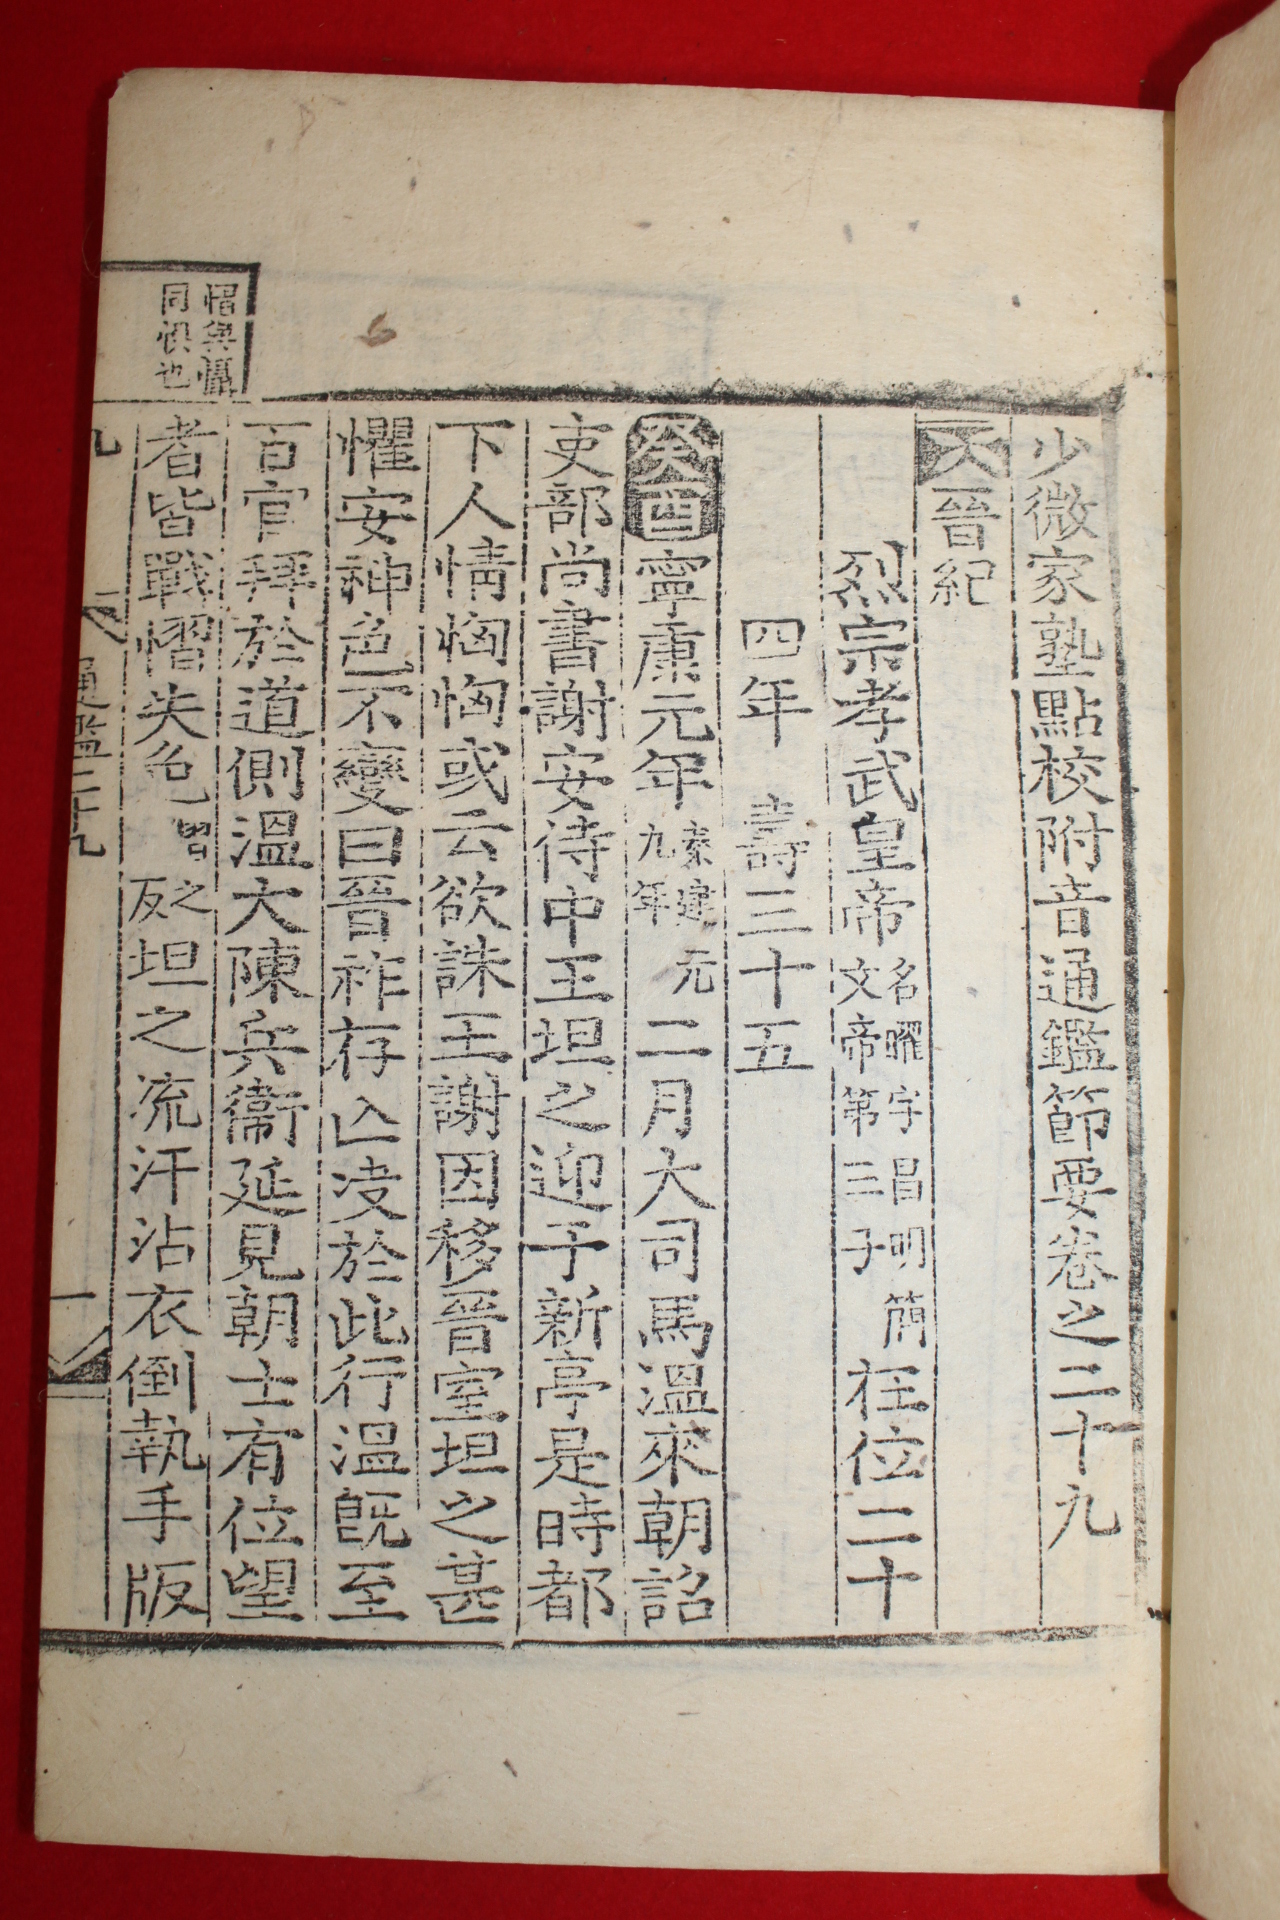 少微家塾點校附音通鑑節要卷之二十九
晉紀
烈宗孝武皇帝名曜字昌明簡文帝第三子在位二十
四年 壽三十五
癸酉寧康元年秦建元九年二月大司馬溫來朝詔
吏部尚書謝安侍中王坦之迎于新亭是時都
下人情恟恟或云欲誅王謝因移晉室坦之甚
懼安神色不變曰晉祚存亡決於此行溫旣至
百官拜於道側溫大陳兵衛延見朝士有位望
者皆戰慴失色之反坦之流汗沾衣倒執手版
慴與懾
同惧也
通鑑二十九
一